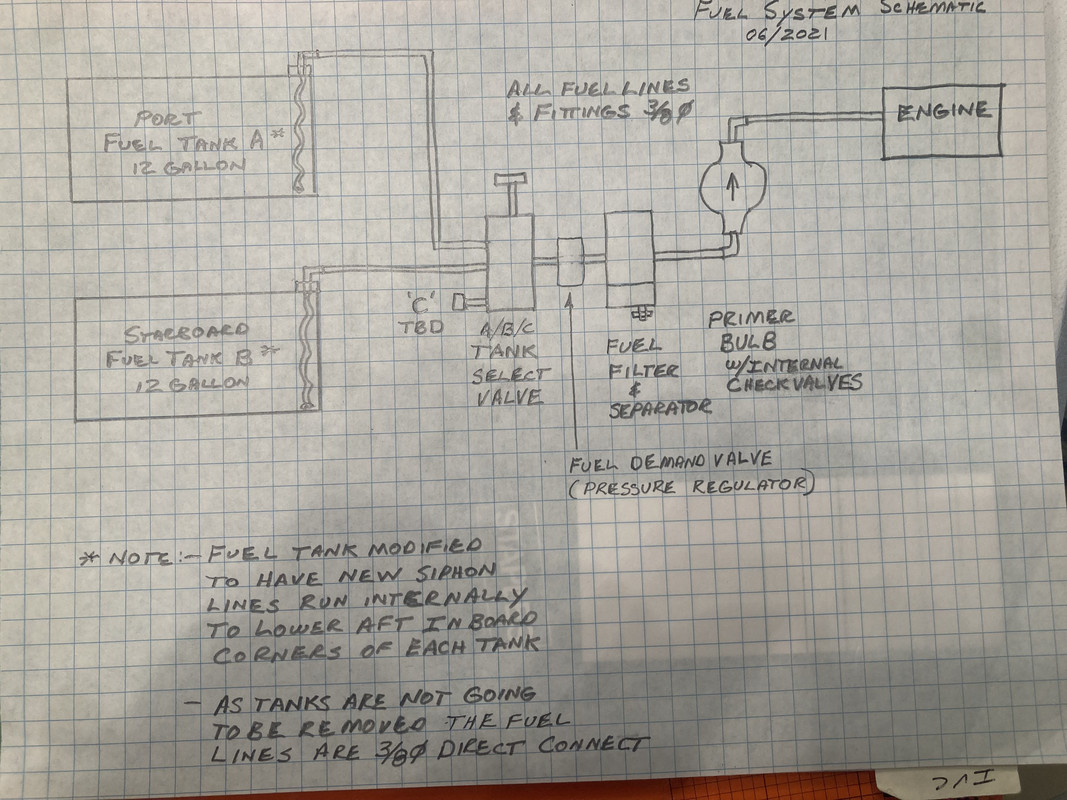 FUEL SYSTEM SCHEMATIC
06/2021
ALL FUEL LINES
& FITTINGS 3/8Ø
ENGINE
PORT
FUEL TANK A*
12 GALLON
STARBOARD
FUEL TANK B*
12 GALLON
'C'
TBD
A/B/C
TANK
SELECT
VALVE
FUEL
FILTER
&
SEPARATOR
PRIMER
BULB
W/INTERNAL
CHECKVALVES
FUEL DEMAND VALVE
(PRESSURE REGULATOR)
* NOTE:- FUEL TANK MODIFIED
TO HAVE NEW SIPHON
LINES RUN INTERNALLY
TO LOWER AFT INBOARD
CORNERS OF EACH TANK
- AS TANKS ARE NOT GOING
TO BE REMOVED THE FUEL
LINES ARE 3/8Ø DIRECT CONNECT